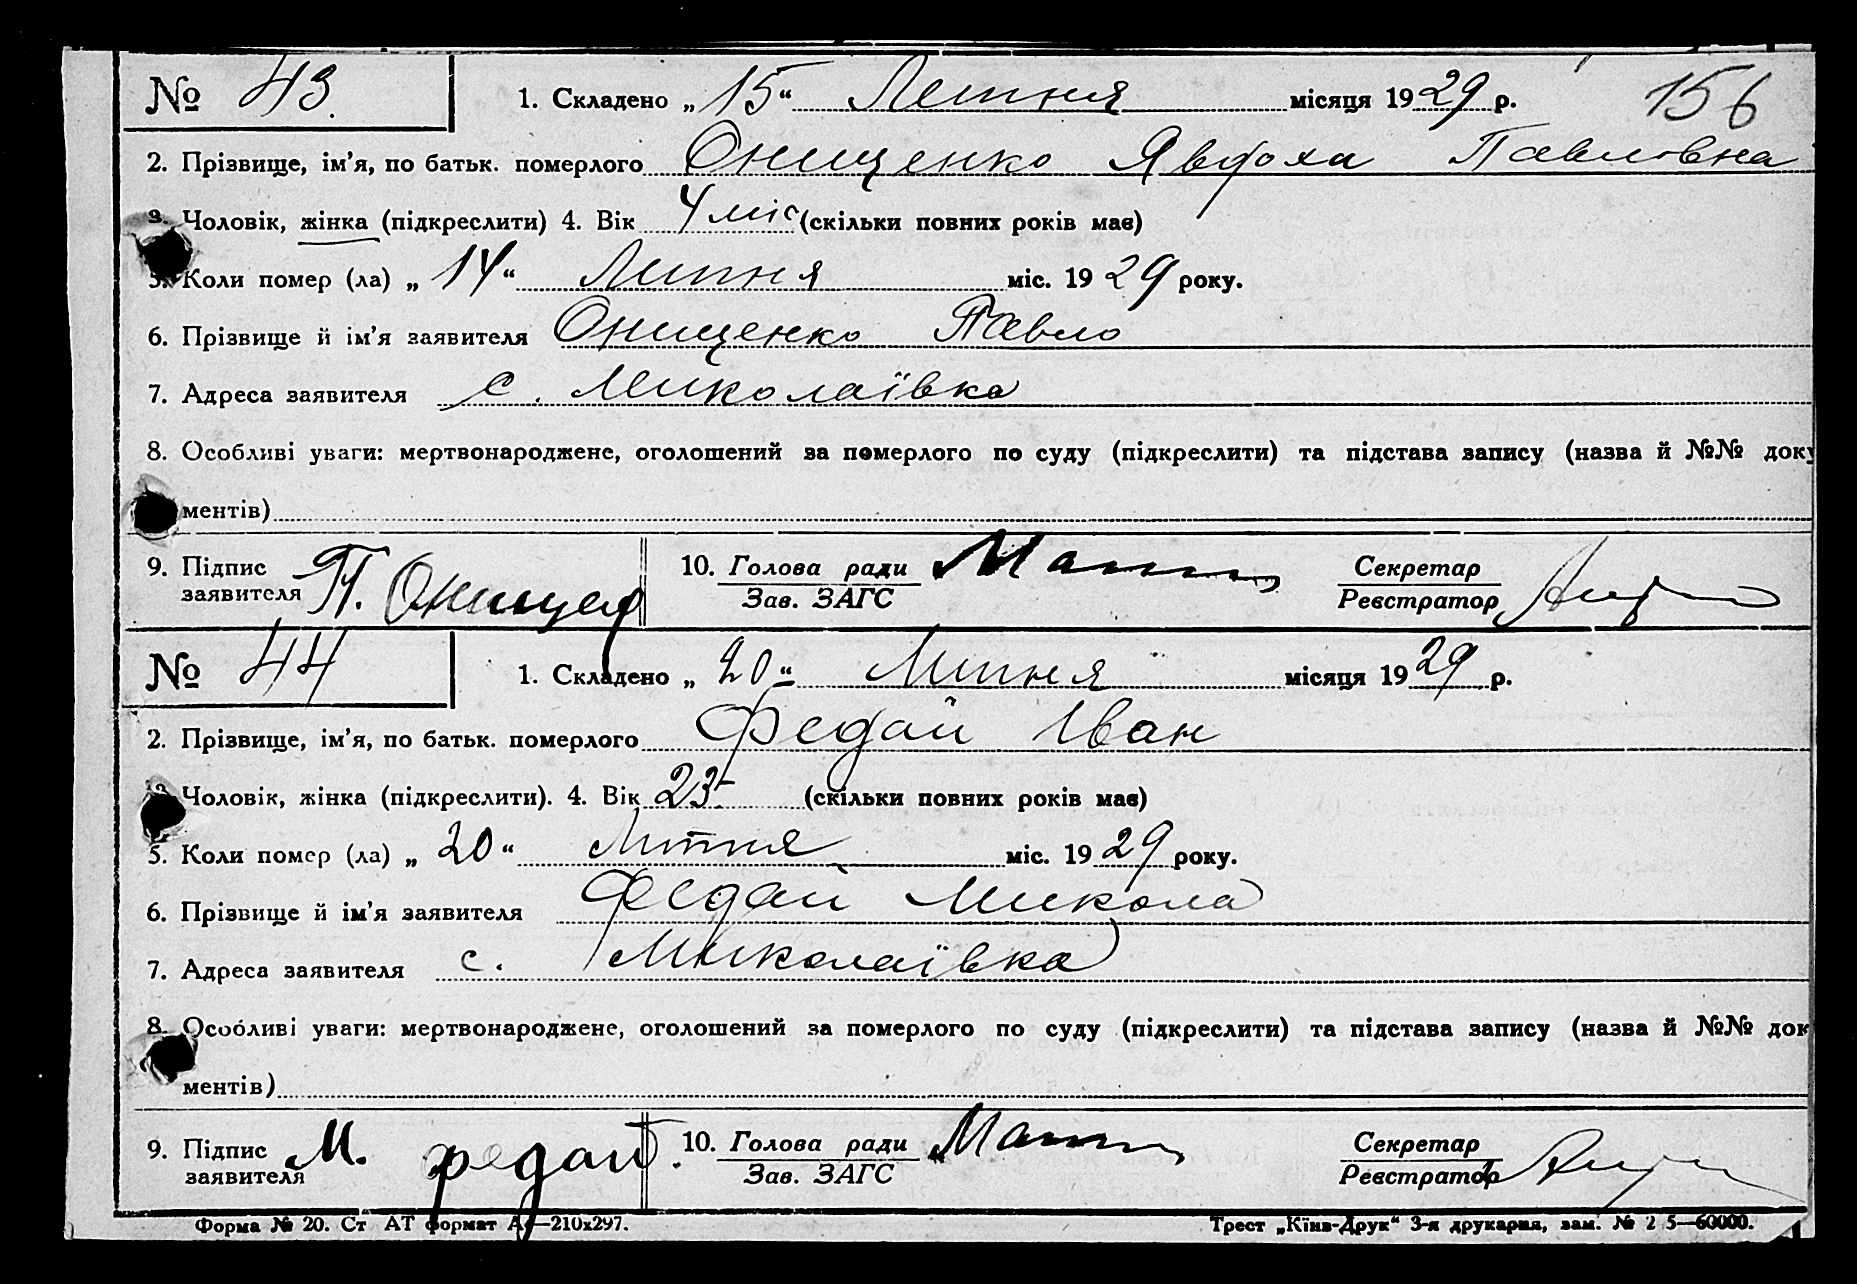 № 43. 1. Складено „15“ Липня місяця 1929 р. 156
2. Прізвище, ім’я, по батьк. померлого Онищенко Явдоха Павловна
3. Чоловік, жінка (підкреслити) 4. Вік 4 міс (скільки повних років має)
5. Коли помер (ла) „14“ Липня міс. 1929 року.
6. Прізвище й ім’я заявителя Онищенко Павло
7. Адреса заявителя с. Миколаївка
8. Особливі уваги: мертвонароджене, оголошений за померлого по суду (підкреслити) та підстава запису (назва й №№ доку
ментів)
9. Підпис заявителя П. Онищен 10. Голова ради Секретар
Зав. ЗАГС Реєстратор
№ 44 1. Складено „20“ Липня місяця 1929 р.
2. Прізвище, ім’я, по батьк. померлого Федай Іван
3. Чоловік, жінка (підкреслити). 4. Вік 23 (скільки повних років має)
5. Коли помер (ла) „20“ Липня міс. 1929 року.
6. Прізвище й ім’я заявителя Федай Микола
7. Адреса заявителя с. Миколаївка
8. Особливі уваги: мертвонароджене, оголошений за померлого по суду (підкреслити) та підстава запису (назва й №№ док
ментів)
9. Підпис заявителя М. Федай. 10. Голова ради Секретар
Зав. ЗАГС Реєстратор
Форма № 20. Ст АТ формат А4—210х297. Трест „Київ-Друк“ 3-я друкарня, зам. № 2 5—60000.